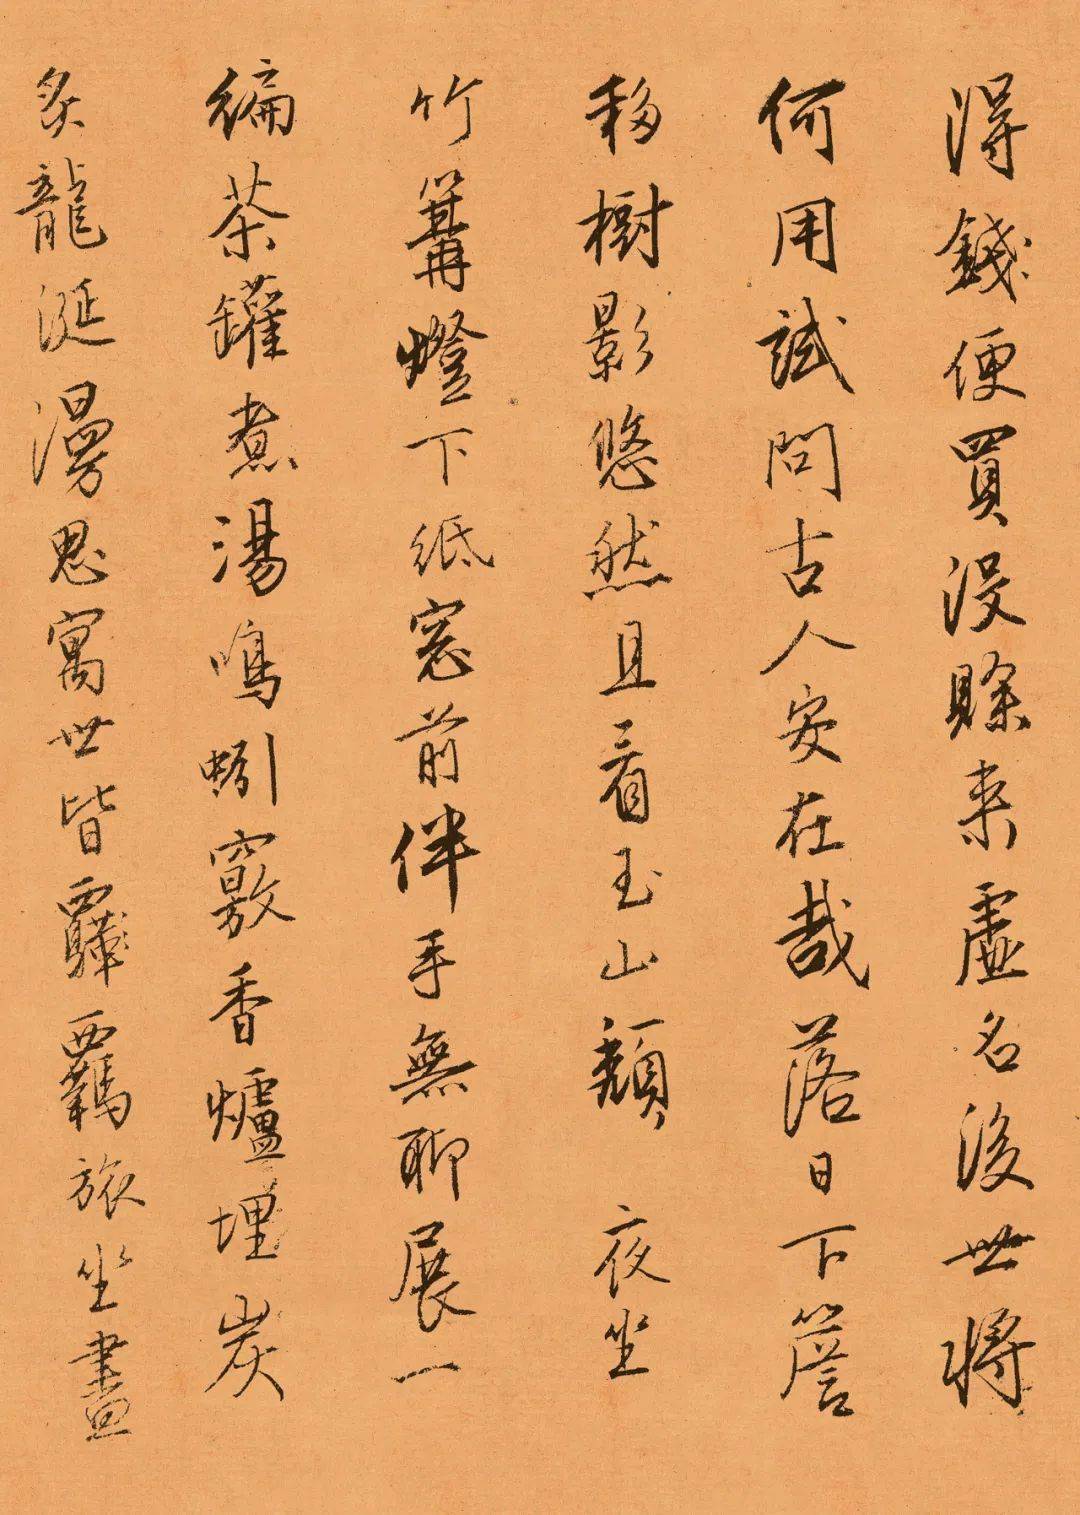 得錢便買沒賒来虛名後世將
何用試問古人安在哉落日下簷
移樹影悠然且看玉山頹 夜坐
竹篝燈下紙窓前伴手無聊展一
編茶罐煮湯鳴蚓竅香爐埋炭
炙龍涎漫思寓世皆羈旅坐盡